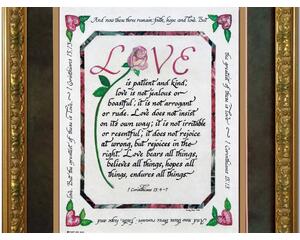 And now these three remain: faith, hope and love. But
the greatest of these is love. ~ 1 Corinthians 13:13
LOVE
is patient and kind,
love is not jealous or
boastful; it is not arrogant
or rude. Love does not insist
on its own way; it is not irritable
or resentful; it does not rejoice
at wrong, but rejoices in the
right. Love bears all things,
believes all things, hopes all
things, endures all things.
1 Corinthians 13:4-7
And now these three remain: faith, hope and
love. But the greatest of these is love. ~ 1 Corinthians 13:13